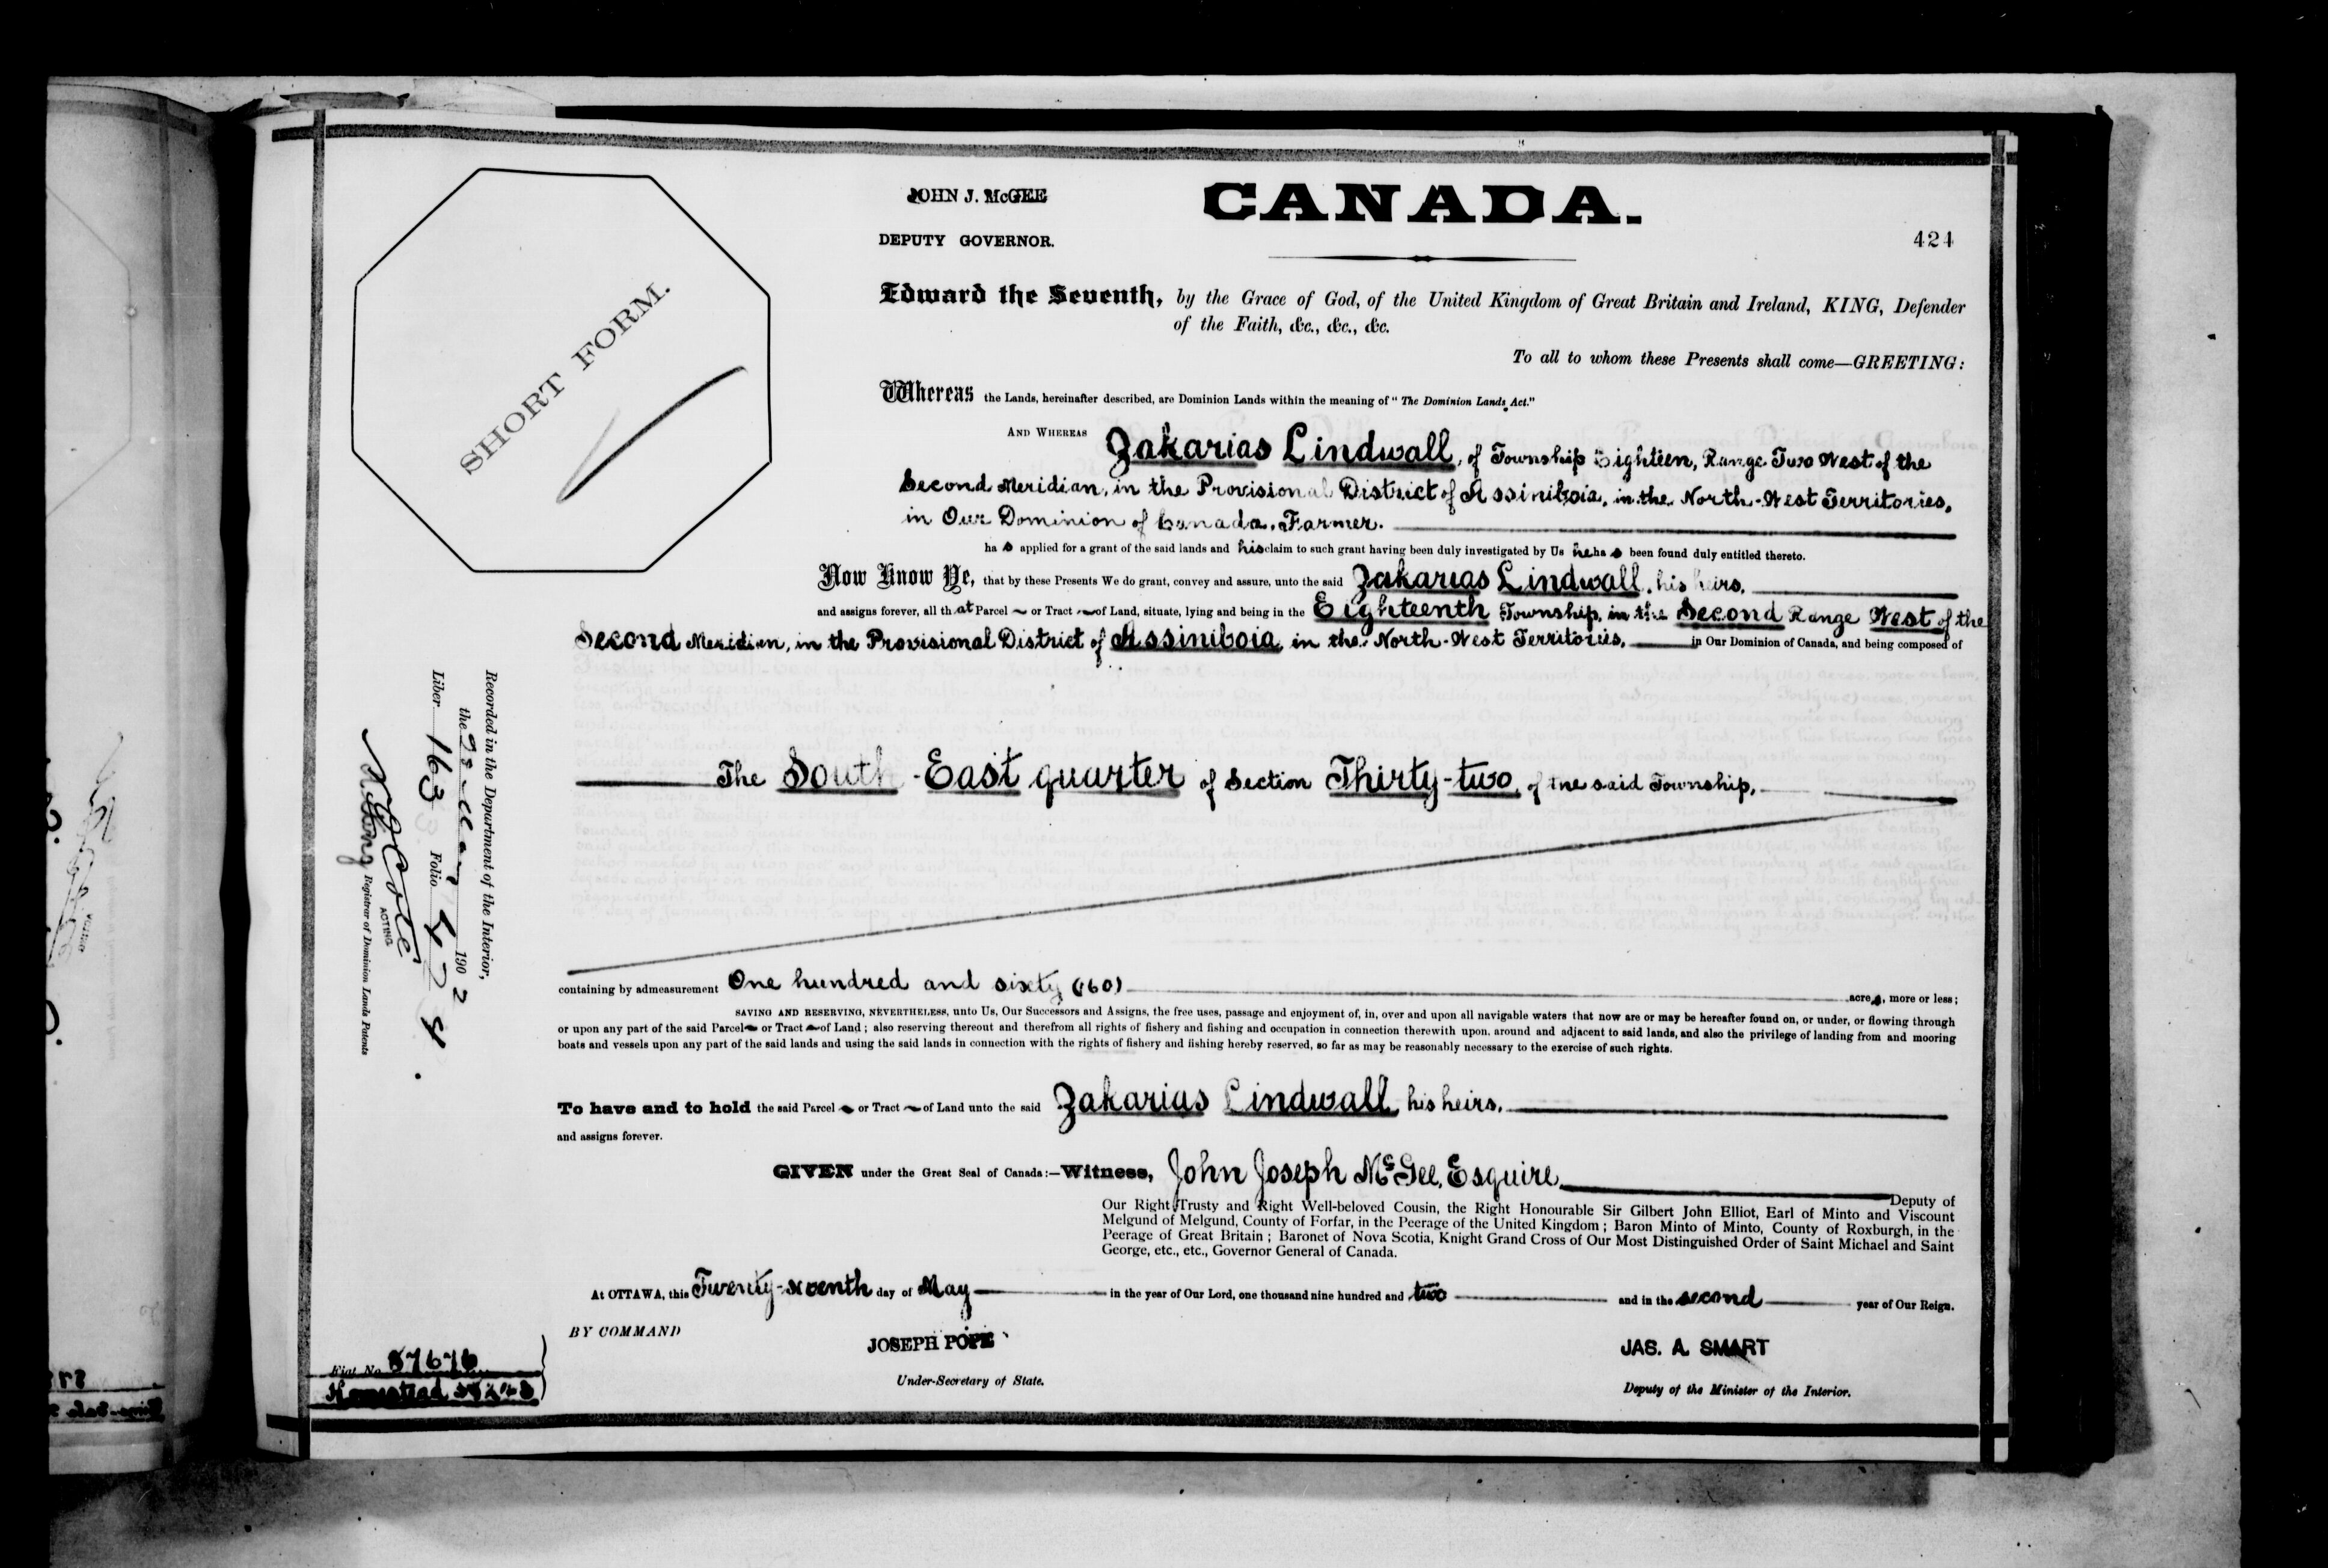 JOHN J. McGEE
DEPUTY GOVERNOR.
CANADA.
424
SHORT FORM.
Edward the Seventh, by the Grace of God, of the United Kingdom of Great Britain and Ireland, KING, Defender
of the Faith, &c., &c., &c.
To all to whom these Presents shall come—GREETING:
Whereas the Lands, hereinafter described, are Dominion Lands within the meaning of "The Dominion Lands Act."
AND WHEREAS Zakarias Lindwall, of Township Eighteen, Range Two West of the
Second Meridian, in the Provisional District of Assiniboia, in the North-West Territories,
in Our Dominion of Canada, Farmer.
ha s applied for a grant of the said lands and his claim to such grant having been duly investigated by Us he ha s been found duly entitled thereto.
Now Know Ye, that by these Presents We do grant, convey and assure, unto the said Zakarias Lindwall, his heirs,
and assigns forever, all that Parcel or Tract of Land, situate, lying and being in the Eighteenth Township, in the Second Range West of the
Second Meridian, in the Provisional District of Assiniboia in the North-West Territories, in Our Dominion of Canada, and being composed of
The South-East quarter of Section Thirty-two, of the said Township,
containing by admeasurement One hundred and sixty (160) acres, more or less;
SAVING AND RESERVING, NEVERTHELESS, unto Us, Our Successors and Assigns, the free uses, passage and enjoyment of, in, over and upon all navigable waters that now are or may be hereafter found on, or under, or flowing through
or upon any part of the said Parcel or Tract of Land; also reserving thereout and therefrom all rights of fishery and fishing and occupation in connection therewith upon, around and adjacent to said lands, and also the privilege of landing from and mooring
boats and vessels upon any part of the said lands and using the said lands in connection with the rights of fishery and fishing hereby reserved, so far as may be reasonably necessary to the exercise of such rights.
To have and to hold the said Parcel or Tract of Land unto the said Zakarias Lindwall, his heirs,
and assigns forever.
GIVEN under the Great Seal of Canada:—Witness, John Joseph McGee, Esquire,
Deputy of
Our Right Trusty and Right Well-beloved Cousin, the Right Honourable Sir Gilbert John Elliot, Earl of Minto and Viscount
Melgund of Melgund, County of Forfar, in the Peerage of the United Kingdom; Baron Minto of Minto, County of Roxburgh, in the
Peerage of Great Britain; Baronet of Nova Scotia, Knight Grand Cross of Our Most Distinguished Order of Saint Michael and Saint
George, etc., etc., Governor General of Canada.
At OTTAWA, this Twenty-seventh day of May in the year of Our Lord, one thousand nine hundred and two and in the second year of Our Reign.
BY COMMAND
JOSEPH POPE
Under-Secretary of State.
JAS. A. SMART
Deputy of the Minister of the Interior.
Recorded in the Department of the Interior,
the 28 May 1902
Liber 163 Folio 424
N. O. Coté
ACTING
Registrar of Dominion Lands Patents
Fiat No. 57676
Homestead